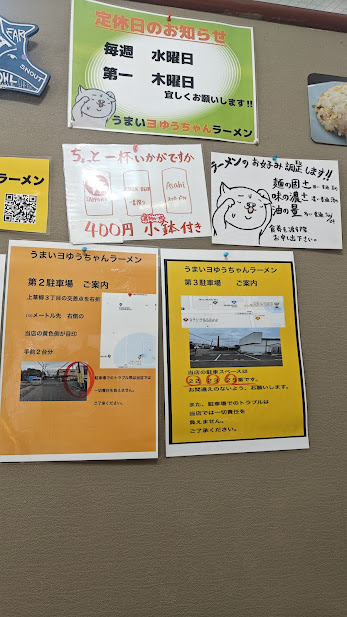 定休日のお知らせ
毎週 水曜日
第一 木曜日
宜しくお願いします!!
うまいヨゆうちゃんラーメン
EAR
SNOUT
ラーメン
ちょっと一杯いかがですか
SAPPORO
Asahi
400円 小鉢付き
ラーメンのお好み調整します!!
麺の固さ
味の濃さ
油の量
食券を渡す際
お申し出下さい。
うまいヨゆうちゃんラーメン
第2駐車場 ご案内
上草柳3丁目の交差点を右折
メートル先 右側の
当店の黄色側が目印
手前2台分
駐車場でのトラブル等は当店では
一切責任を負えません。
ご了承ください。
うまいヨゆうちゃんラーメン
第3駐車場 ご案内
当店の駐車スペースは
番です。
お間違えのないよう、お願いします。
また、駐車場でのトラブルは
当店では一切責任を
負えません。
ご了承ください。